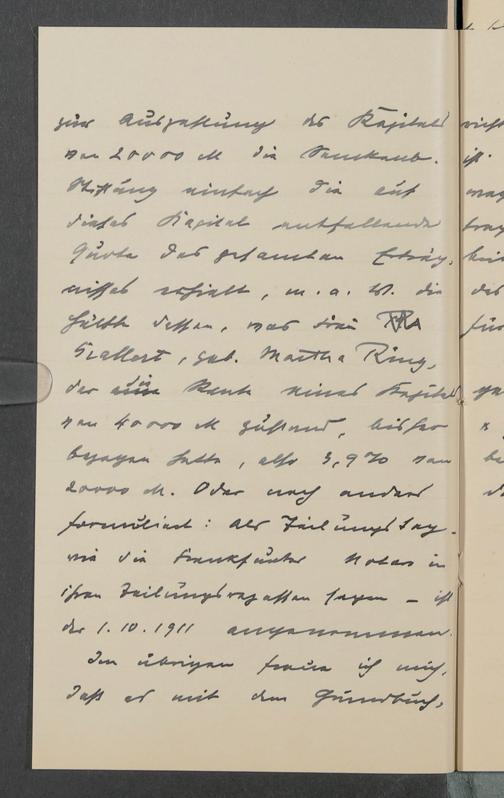 zur Auszahlung des Kapitals
von 20000 M die Senckenb.
Stiftung einfach die auf
dieses Kapital entfallende
Quote des gesamten Erträg-
nisses erhielt, m. a. W. die
Hälfte dessen, was Frau
, geb. Martha Ring,
der die Rente eines Kapitals
von 40000 M zustand, bisher
bezogen hatte, also 3,970 von
20000 M. Oder noch anders
formuliert: Als Teilungstag -
wie die Frankfurter Notare in
ihren Teilungsrezessen sagen - ist
der 1.10.1911 angenommen.
Im übrigen freue ich mich,
daß es mit dem Grundbuch,